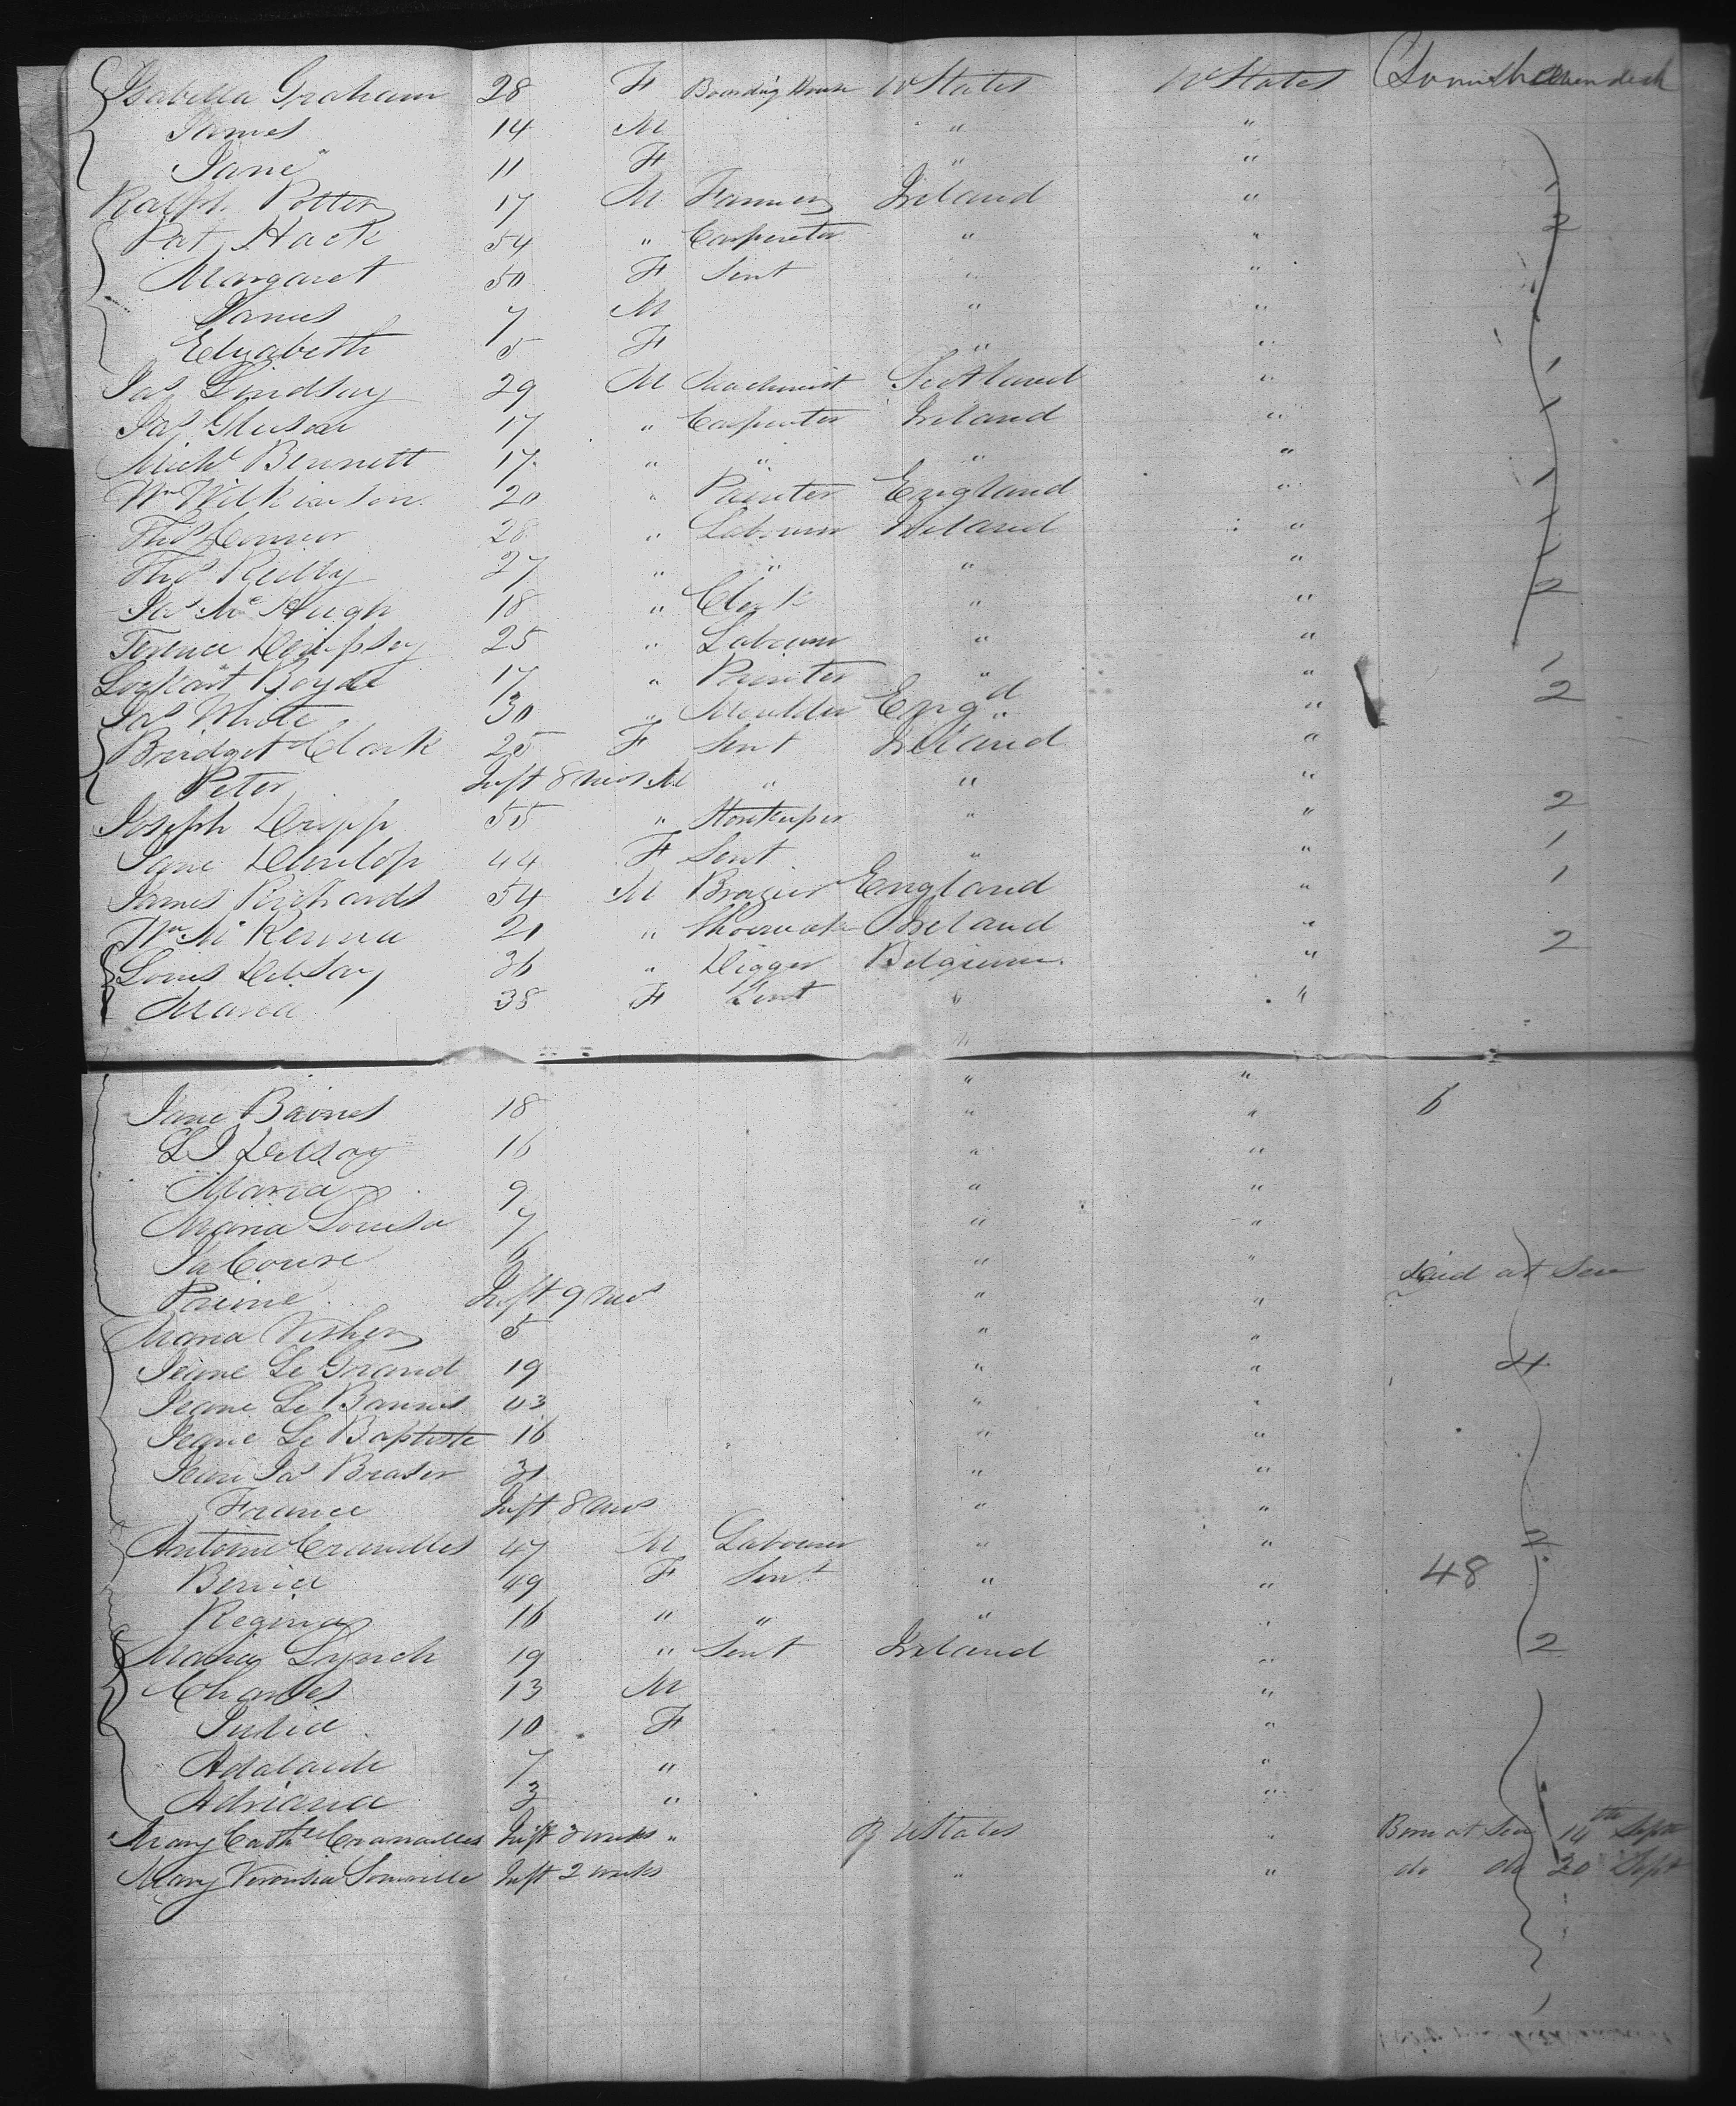 Isabella Graham 28 F Boarding House U States U States
James 14 M " "
Jane 11 F " "
Ralph Potter 17 M Farmer Ireland " 1
Pat Hack 54 " Carpenter " " 2
Margaret 50 F Servt " "
James 7 M " "
Elizabeth 5 F " "
Jas Lindsay 29 M Machinist Scotland " 1
Jas 17 " Carpenter Ireland " 1
Michl Bennett 17 " " " "
Wm Wilkinson 20 " Painter England " 1
Thos Connor 28 " Labourer Ireland " 1
Thos Reilly 27 " " " " 1
Jas McHugh 18 " Clerk " " 2
Terence Dempsey 25 " Labourer " "
Boyd 17 " Painter " " 1
Jas White 30 " Moulder Engd " 2
Bridget Clark 25 F Servt Ireland "
Peter Inft 8 mos M " " "
Joseph 55 " Storekeeper " " 2
Jane Dunlop 44 F Servt " " 1
James Richards 54 M Brazier England " 1
Wm McKenna 21 " Shoemak Ireland "
Louis Delsay 36 " Digger Belgium " 2
Maria 38 F Servt " "
Jane Baines 18 " " 6
L J Delsay 16 " "
Maria 9 " "
Maria Louisa 7 " "
6 " "
Inft 9 mos " " Died at Sea
Maria 5 " "
Jeane Le Grand 19 " " 4
Jeane Le 43 " "
Jeane Le Baptiste 16 " "
Jean Jas 31 " "
France Inft 8 mos " "
Antoine 47 M Labourer " " 2
49 F Servt " " 48
Regina 16 " " " "
Maria Lynch 19 " Servt Ireland " 2
Charles 13 M "
Julia 10 F "
Adalaide 7 " "
Adriana 3 " "
Mary Cathe Inft 3 weeks " U States " Born at Sea 14th Septr
Mary Inft 2 weeks " " do do 20 Sept